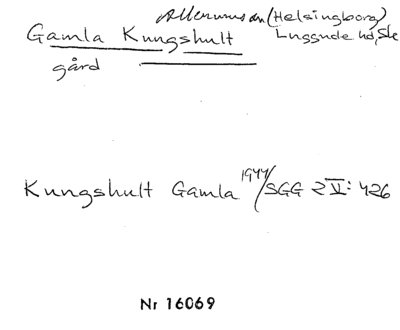 Allerums sn (Helsingborg)
Gamla Kungshult Luggude hd, Sk
gård
Kungshult Gamla 1944/SGG 2 V: 426
Nr 16069